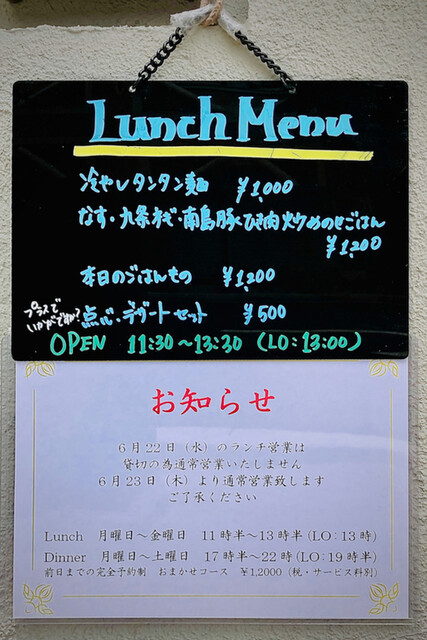 Lunch Menu
冷やしタンタン麺 ¥1,000
なす・九条ネギ・南島豚ひき肉炒めのせごはん
¥1,200
本日のごはんもの ¥1,200
プラスで
いかがですか?
点心・デザートセット ¥500
OPEN 11:30〜13:30 (LO:13:00)
お知らせ
6月22日(水)のランチ営業は
貸切の為通常営業いたしません
6月23日(木)より通常営業致します
ご了承ください
Lunch 月曜日〜金曜日 11時半〜13時半(LO:13時)
Dinner 月曜日〜土曜日 17時半〜22時(LO:19時半)
前日までの完全予約制 おまかせコース ¥1,2000(税・サービス料別)